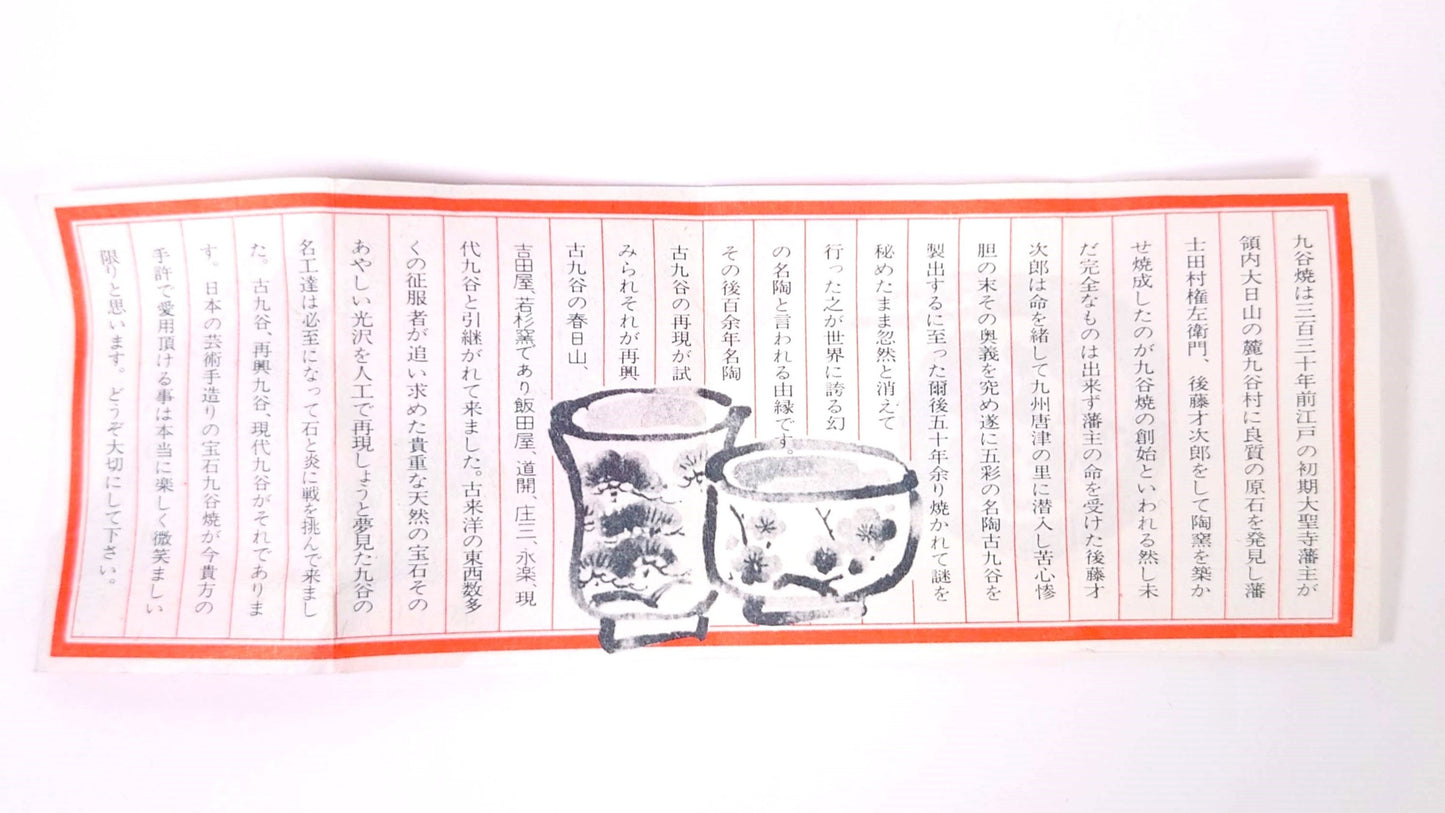 九谷焼は三百三十年前江戸の初期大聖寺藩主が
領内大日山の麓九谷村に良質の原石を発見し藩
士田村権左衛門、後藤才次郎をして陶窯を築か
せ焼成したのが九谷焼の創始といわれる然し未
だ完全なものは出来ず藩主の命を受けた後藤才
次郎は命を緒して九州唐津の里に潜入し苦心惨
胆の末その奥義を究め遂に五彩の名陶古九谷を
製出するに至った爾後五十年余り焼かれて謎を
秘めたまま忽然と消えて
行った之が世界に誇る幻
の名陶と言われる由縁です。
その後百余年名陶
古九谷の再現が試
みられそれが再興
古九谷の春日山、
吉田屋、若杉窯であり飯田屋、道開、庄三、永楽、現
代九谷と引継がれて来ました。古来洋の東西数多
くの征服者が追い求めた貴重な天然の宝石その
あやしい光沢を人工で再現しょうと夢見た九谷の
名工達は必至になって石と炎に戦を挑んで来まし
た。古九谷、再興九谷、現代九谷がそれでありま
す。日本の芸術手造りの宝石九谷焼が今貴方の
手許で愛用頂ける事は本当に楽しく微笑ましい
限りと思います。どうぞ大切にして下さい。